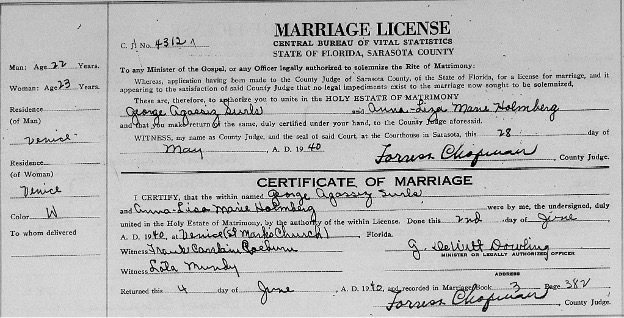 MARRIAGE LICENSE
C. J. No. 4312
CENTRAL BUREAU OF VITAL STATISTICS
STATE OF FLORIDA, SARASOTA COUNTY
Man: Age 22 Years.
Woman: Age 23 Years.
Residence
(of Man)
Venice
Residence
(of Woman)
Venice
Color W
To whom delivered
To any Minister of the Gospel, or any Officer legally authorized to solemnize the Rite of Matrimony:
Whereas, application having been made to the County Judge of Sarasota County, of the State of Florida, for a license for marriage, and it
appearing to the satisfaction of said County Judge that no legal impediments exist to the marriage now sought to be solemnized,
These are, therefore, to authorize you to unite in the HOLY ESTATE OF MATRIMONY
George Agassiz Surls and Anna-Lisa Marie Holmberg
and that you make return of the same, duly certified under your hand, to the County Judge aforesaid.
WITNESS, my name as County Judge, and the seal of said Court, at the Courthouse in Sarasota, this 28 day of
May, A. D. 1940. Forress Chapman, County Judge.
CERTIFICATE OF MARRIAGE
I CERTIFY, that the within named George Agassiz Surls
and Anna-Lisa Marie Holmberg were by me, the undersigned, duly
united in the Holy Estate of Matrimony, by the authority of the within License. Done this 2nd day of June
A. D. 1940, at Venice (St Marks Church), Florida.
Witness Frank G. Dewitt Dowling
MINISTER OR LEGALLY AUTHORIZED OFFICER
Witness Lota Mundy
ADDRESS
Returned this 4 day of June, A. D. 1940, and recorded in Marriage Book 3 Page 382
Forress Chapman, County Judge.